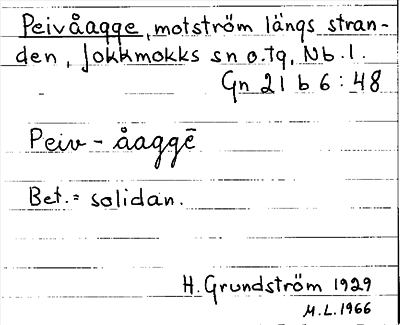 Peivåagge, motström längs stran-
den, Jokkmokks sn o.tg, Nb.l.
Gn 21 b 6:48
Peiv - åaggē
Bet. = solidan.
H. Grundström 1929
M.L. 1966